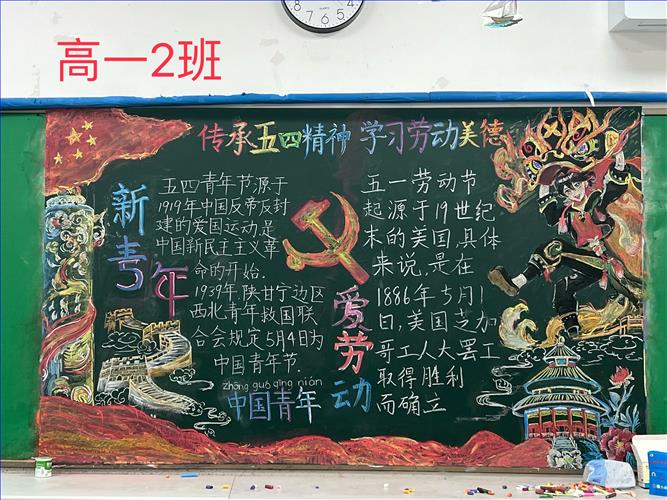 高一2班
传承五四精神 学习劳动美德
新青年
五四青年节源于
1919年中国反帝反封
建的爱国运动是
中国新民主主义革
命的开始.
1939年,陕甘宁边区
西北青年救国联
合会规定5月4日为
中国青年节
zhōng guó qīng nián
中国青年
爱劳动
五一劳动节
起源于19世纪
末的美国,具体
来说,是在
1886年5月1
日,美国芝加
哥工人大罢工
取得胜利
而确立